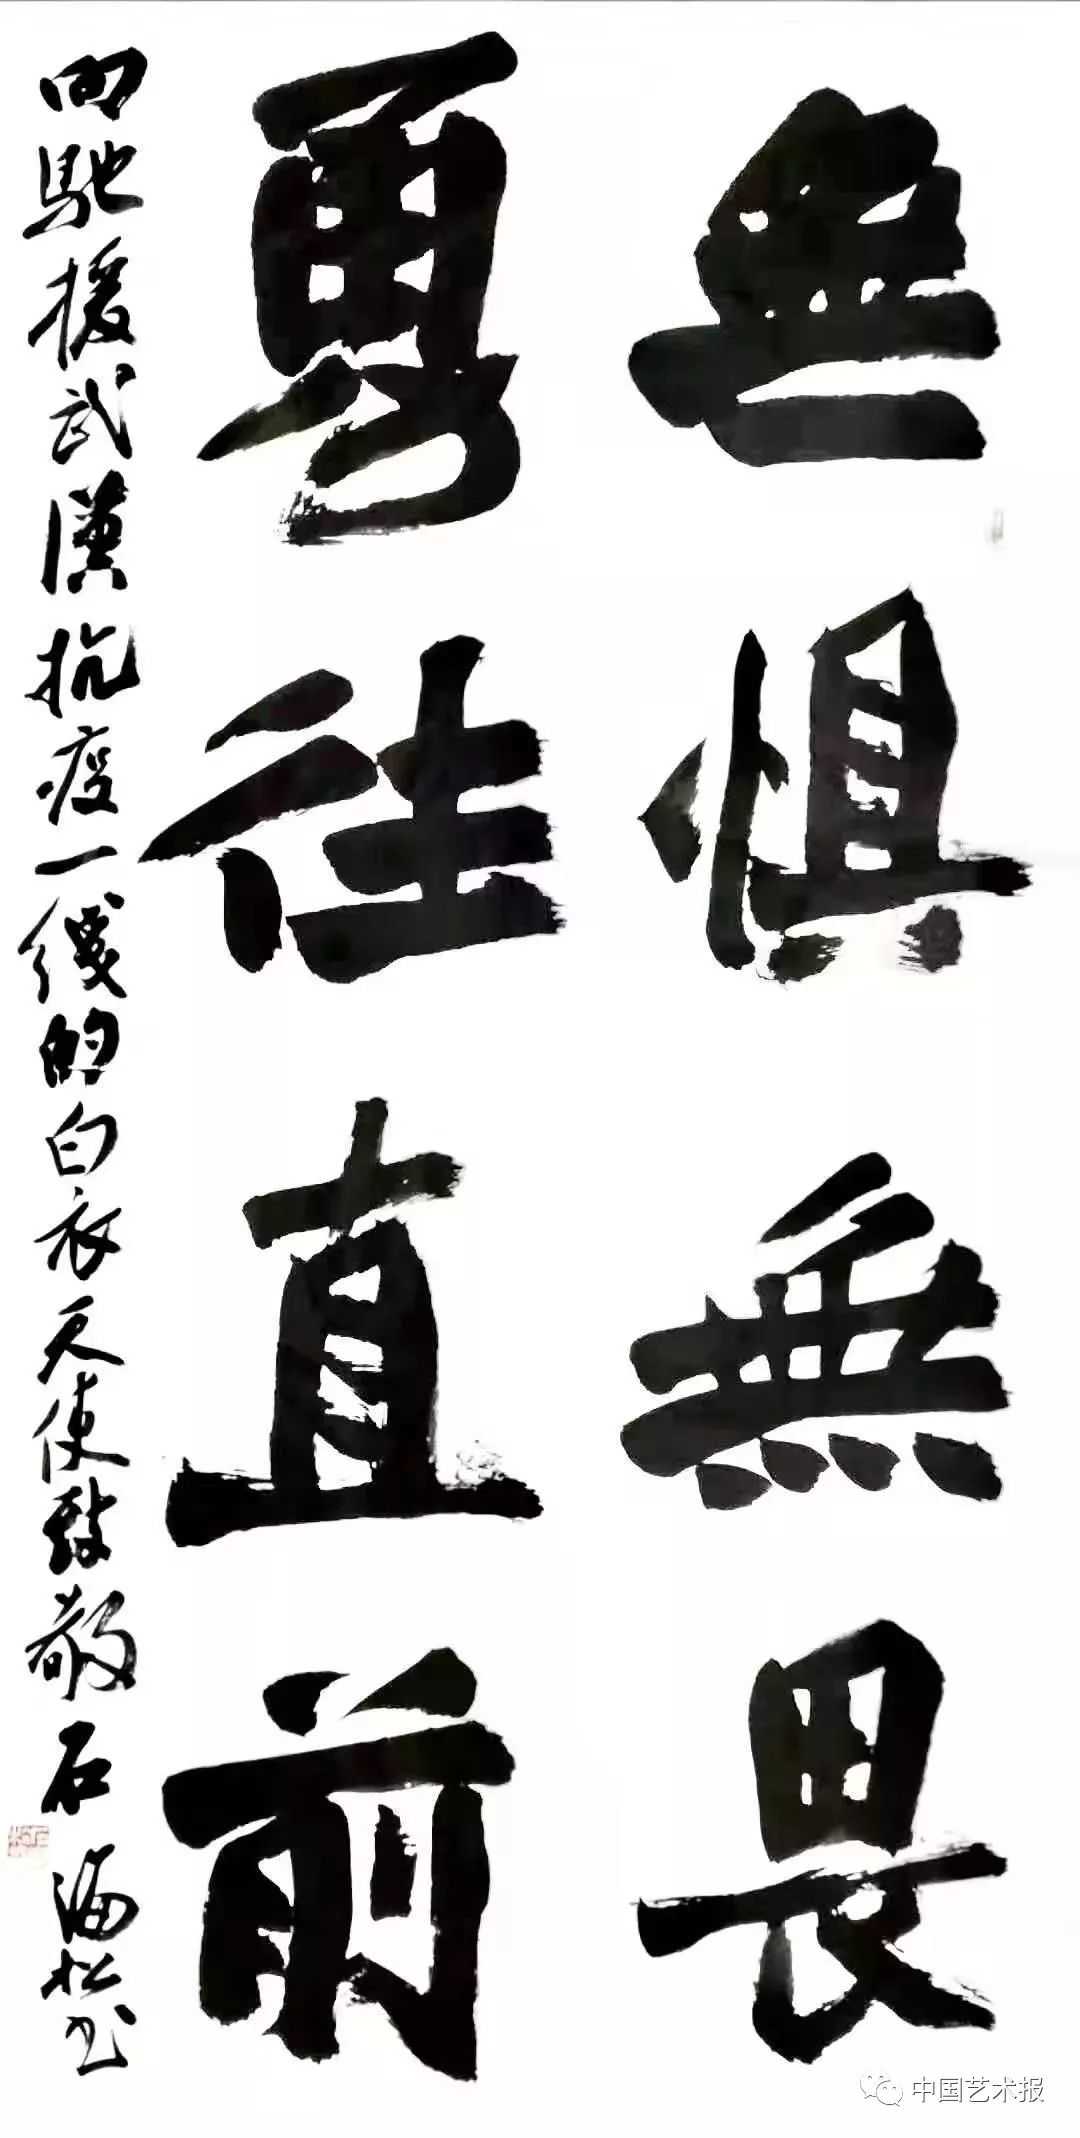 無懼無畏
勇往直前
向馳援武漢抗疫一綫的白衣天使致敬 石海松书
中国艺术报